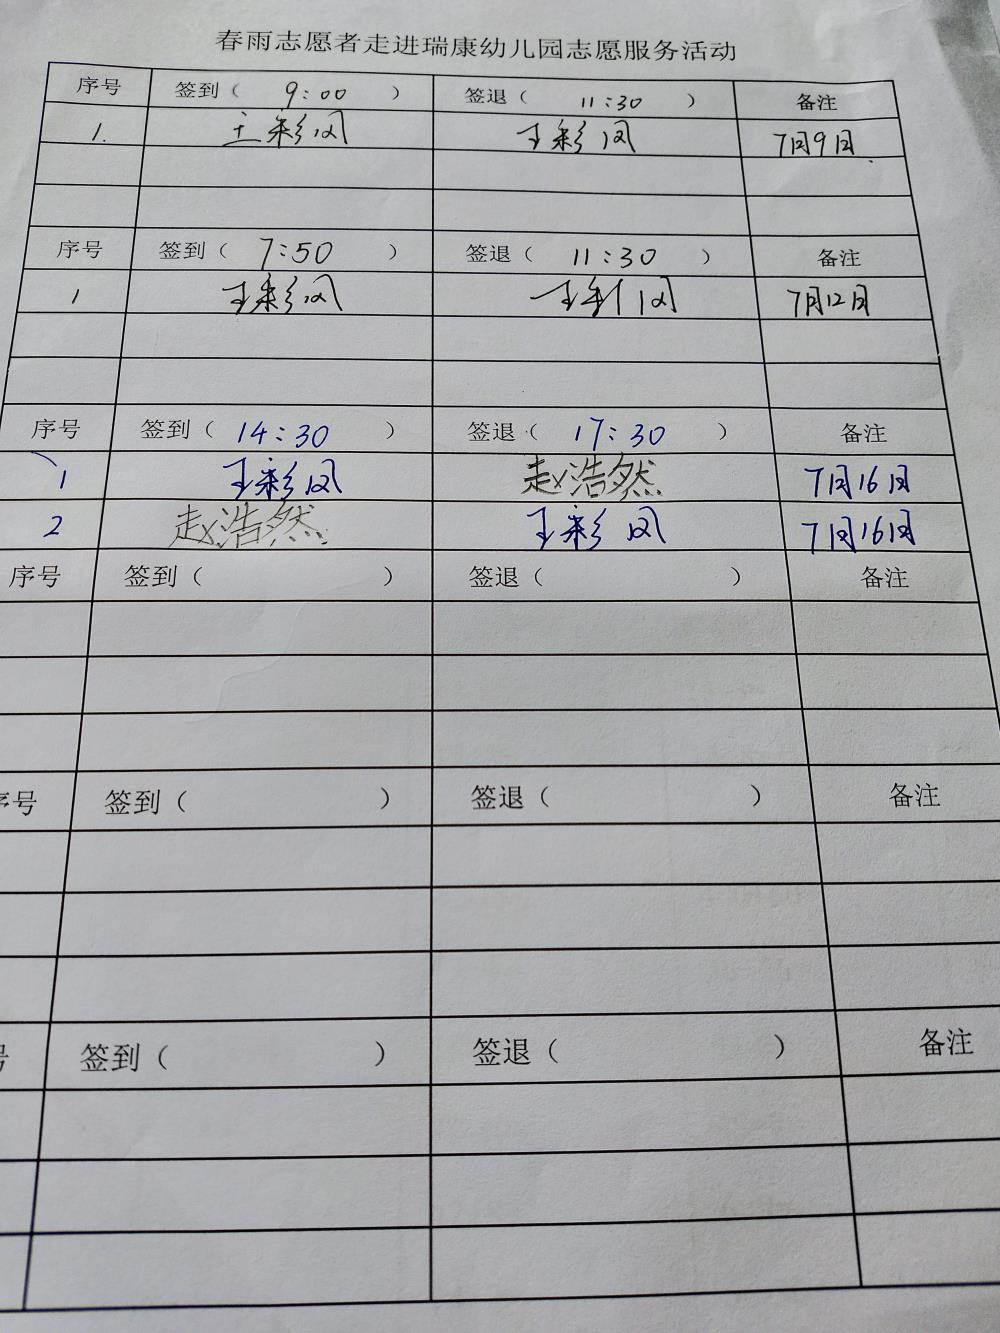 春雨志愿者走进瑞康幼儿园志愿服务活动
序号 签到（ 9:00 ） 签退（ 11:30 ） 备注
1. 王彩凤 王彩凤 7月9日
序号 签到（ 7:50 ） 签退（ 11:30 ） 备注
1 王彩凤 王彩凤 7月12日
序号 签到（ 14:30 ） 签退（ 17:30 ） 备注
1 王彩凤 赵浩然 7月16日
2 赵浩然 王彩凤 7月16日
序号 签到（ ） 签退（ ） 备注
序号 签到（ ） 签退（ ） 备注
号 签到（ ） 签退（ ） 备注